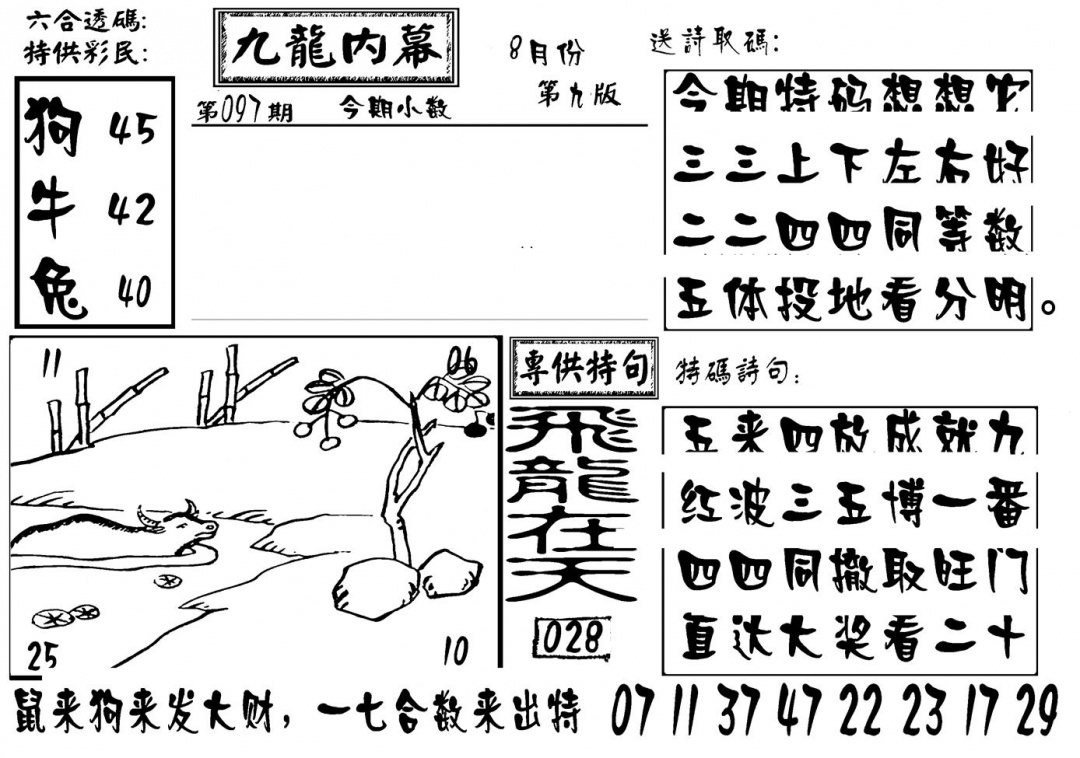 六合透碼:
特供彩民:
狗 45
牛 42
兔 40
九龍内幕
第097期
今期小数
8月份
第九版
送詩取碼:
今期特码想想它
三三上下左右好
二二四四同等数
五体投地看分明。
11
06
25
10
專供特句
飛龍在天
028
特碼詩句:
五来四放成就力
红波三五博一番
四四同撤取旺门
直达大奖看二十
鼠来狗来发大财,一七合数来出特 07 11 37 47 22 23 17 29